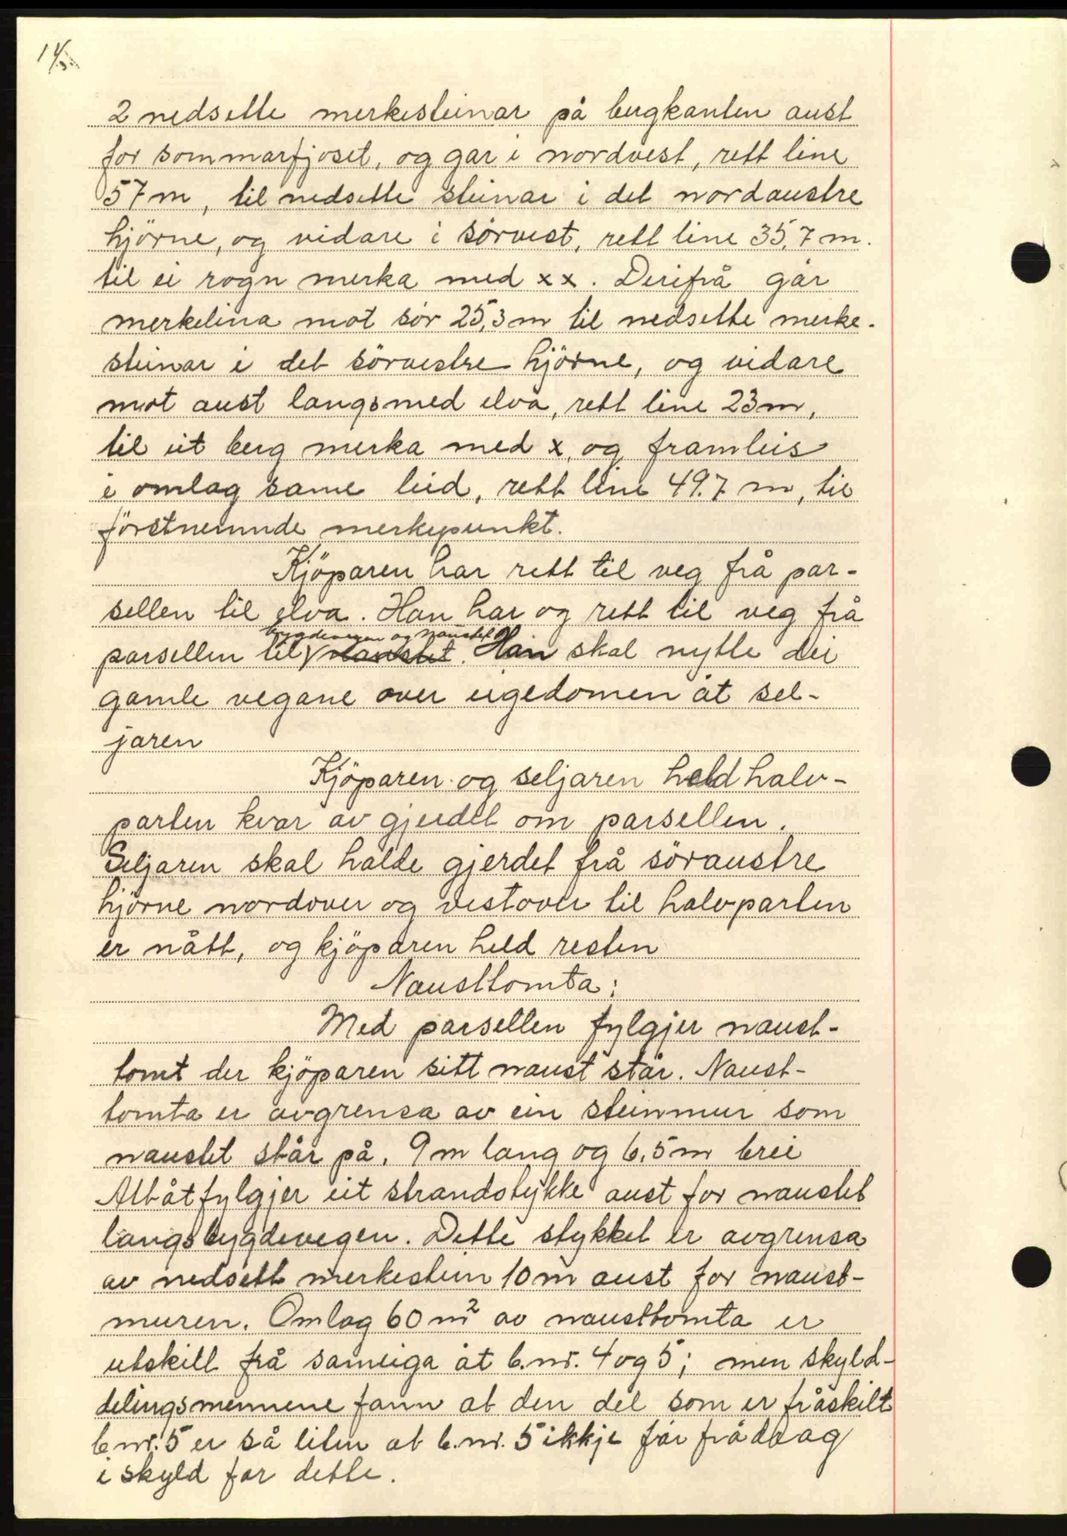 2 nedsette merkesteinar på bergkanten aust
for sommarfjoset, og gar i nordvest, rett line
57 m, til nedsette steinar i det nordaustre
hjörne, og vidare i sörvest, rett line 35,7 m.
til ei rogn merka med x x. Derifrå går
merkelina mot sör 25,3 m til nedsette merke-
steinar i det sörvestre hjörne, og vidare
mot aust langsmed elva, rett line 23 m,
til eit berg merka med x, og framleis
i omlag same leid, rett line 49.7 m, til
förstnemnde merkepunkt.
Kjöparen har rett til veg frå par-
sellen til elva. Han har og rett til veg frå
bygdevegen og naustet
parsellen til naustet. Han skal nytte dei
gamle vegane over eigedomen åt sel-
jaren
Kjöparen og seljaren held halv-
parten kvar av gjerdet om parsellen.
Seljaren skal halde gjerdet frå söraustre
hjörne nordover og vestover til halvparten
er nått, og kjöparen held resten
Nausttomta:
Med parsellen fylgjer naust-
tomt der kjöparen sitt naust står. Naust-
tomta er avgrensa av ein steinmur som
naustet står på, 9 m lang og 6,5 m brei
Attåt fylgjer eit strandstykke aust for naustet
langs bygdevegen. Dette stykket er avgrensa
av nedsett merkestein 10 m aust for naust-
muren. Omlag 60 m² av nausttomta er
utskilt frå sameiga åt b.nr. 4 og 5; men skyld-
delingsmennene fann at den del som er fråskilt
b.nr. 5 er så liten at b.nr. 5 ikkje får frådrag
i skyld for dette.